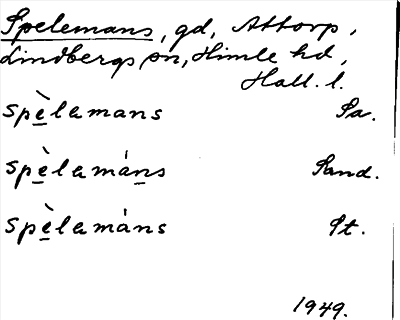 Spelemans, gd, Attorp,
Lindbergs sn, Himle hd,
Hall. l.
spè̲lemans Sa.
spè̲lemán̲s Sand.
spè̲lemáns St.
1949.